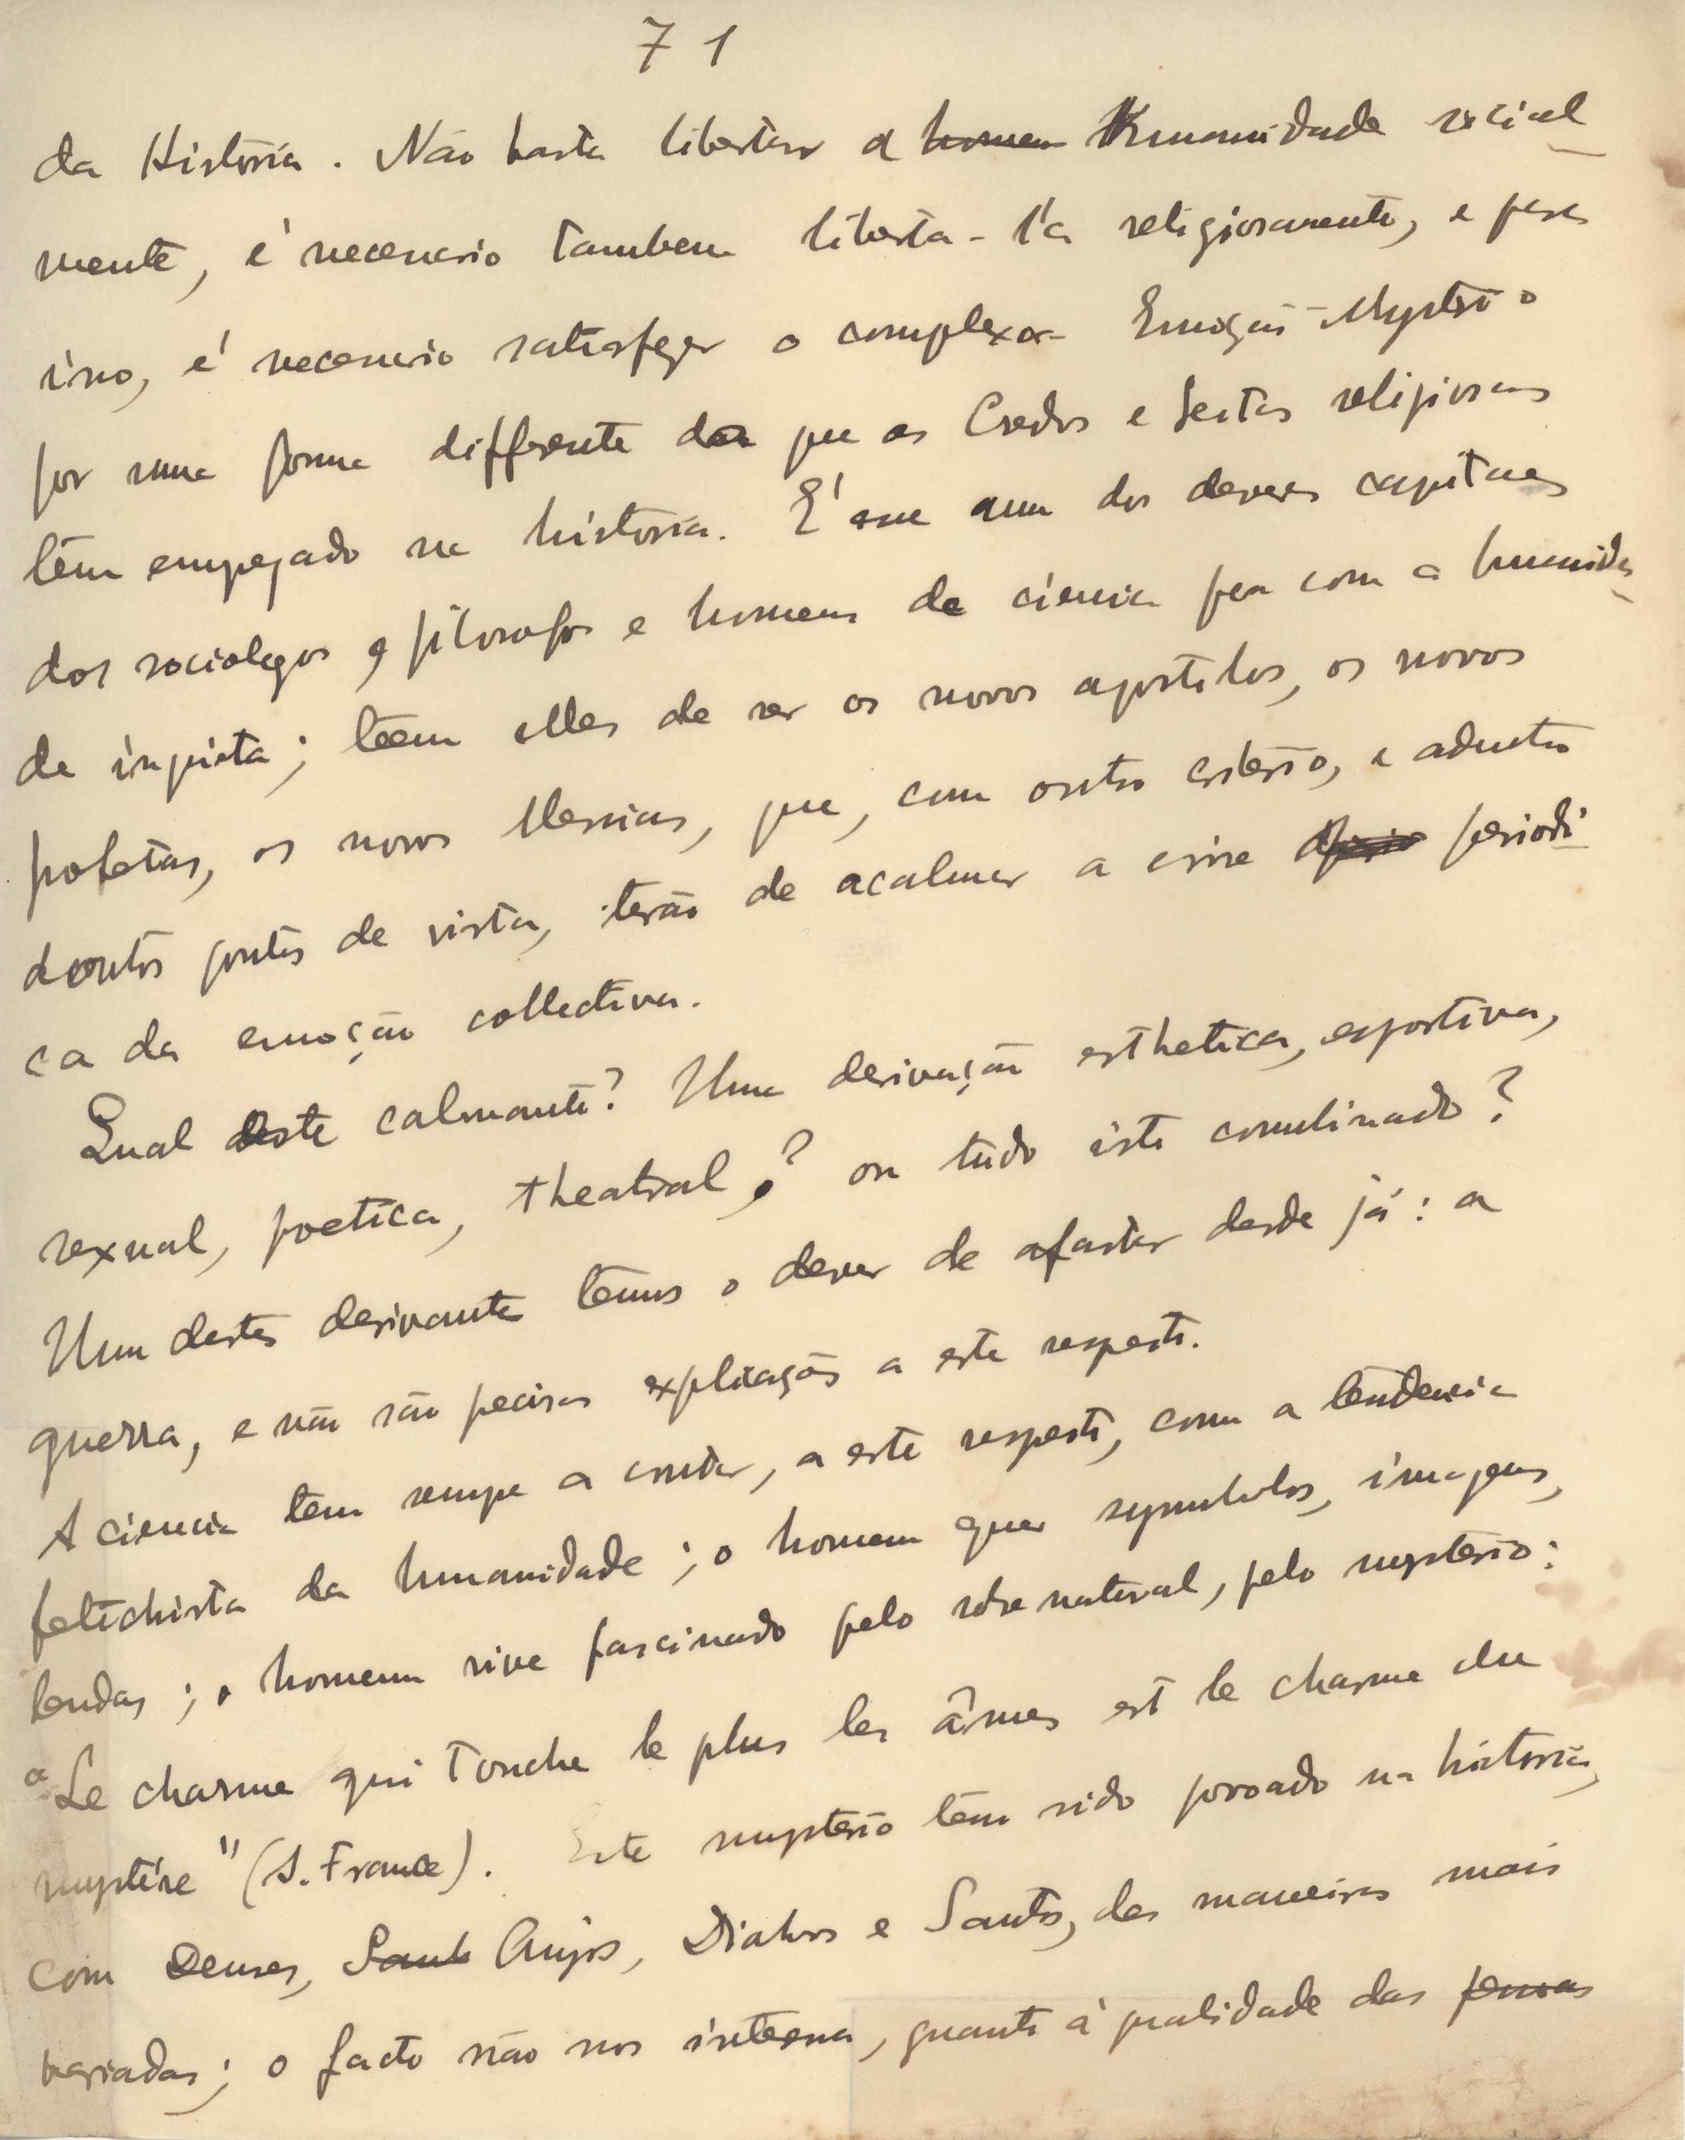 71
da Historia. Não basta libertar a homem Humanidade social
mente, é necessario tambem liberta-l'a religiosamente, e para
isso, é necessario satisfazer o complexo- Emoção-Mysterio
por uma forma differente da que os Credos e Seitas religiosas
têm empregado na historia. É esse um dos deveres capitaes
dos sociologos, filosofos e homens de ciencia para com a humanida
de inquieta; teem elles de ser os novos apostolos, os novos
profetas, os novos Messias, que, com outro criterio, e
doutros pontos de vista, terão de acalmar a crise periodi
ca da emoção collectiva.
Qual este calmante? Uma derivação esthetica, esportiva,
sexual, poetica, theatral,? ou tudo isto combinado?
Um destes derivantes temos o dever de afastar desde já: a
guerra, e não são precisas explicações a este respeito.
A ciencia tem sempre a contar, a este respeito, com a tendencia
fetichista da humanidade; o homem quer symbolos, imagens,
lendas; o homem vive fascinado pelo sobrenatural, pelo mysterio:
"Le charme qui touche le plus les âmes est le charme du
mystère" (A. France). Este mysterio tem sido povoado na historia,
com Deuses, Sant Anjos, Diabos e Santos, das maneiras mais
variadas; o facto não nos interessa, quanto á qualidade das pessoas